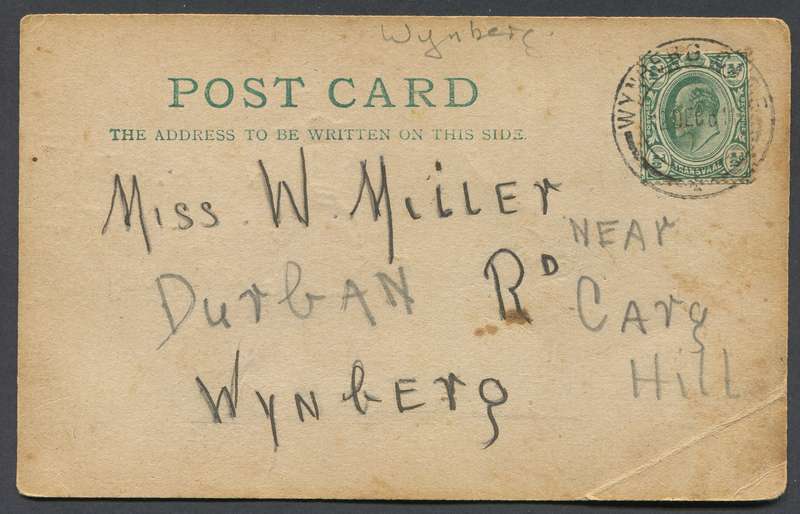 Wynberg.
POST CARD
THE ADDRESS TO BE WRITTEN ON THIS SIDE.
WYNBERG
DEC 8
TRANSVAAL
Miss W. Miller
NEAr
DurbAN RD CArg
Hill
WyNbErg